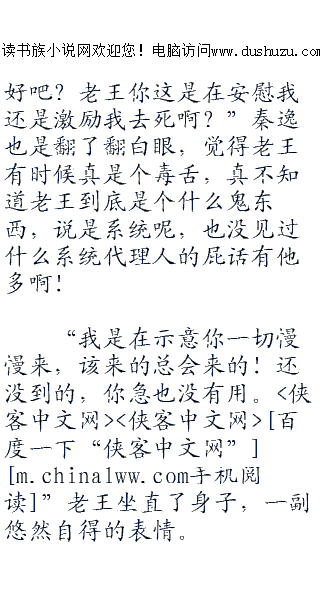 读书族小说网欢迎您！电脑访问www.dushuzu.com
好吧？老王你这是在安慰我
还是激励我去死啊？”秦逸
也是翻了翻白眼，觉得老王
有时候真是个毒舌，真不知
道老王到底是个什么鬼东
西，说是系统呢，也没见过
什么系统代理人的屁话有他
多啊！
“我是在示意你一切慢
慢来，该来的总会来的！还
没到的，你急也没有用。<侠
客中文网><侠客中文网>[百
度一下“侠客中文网”]
[m.chinalww.com手机阅
读]”老王坐直了身子，一副
悠然自得的表情。